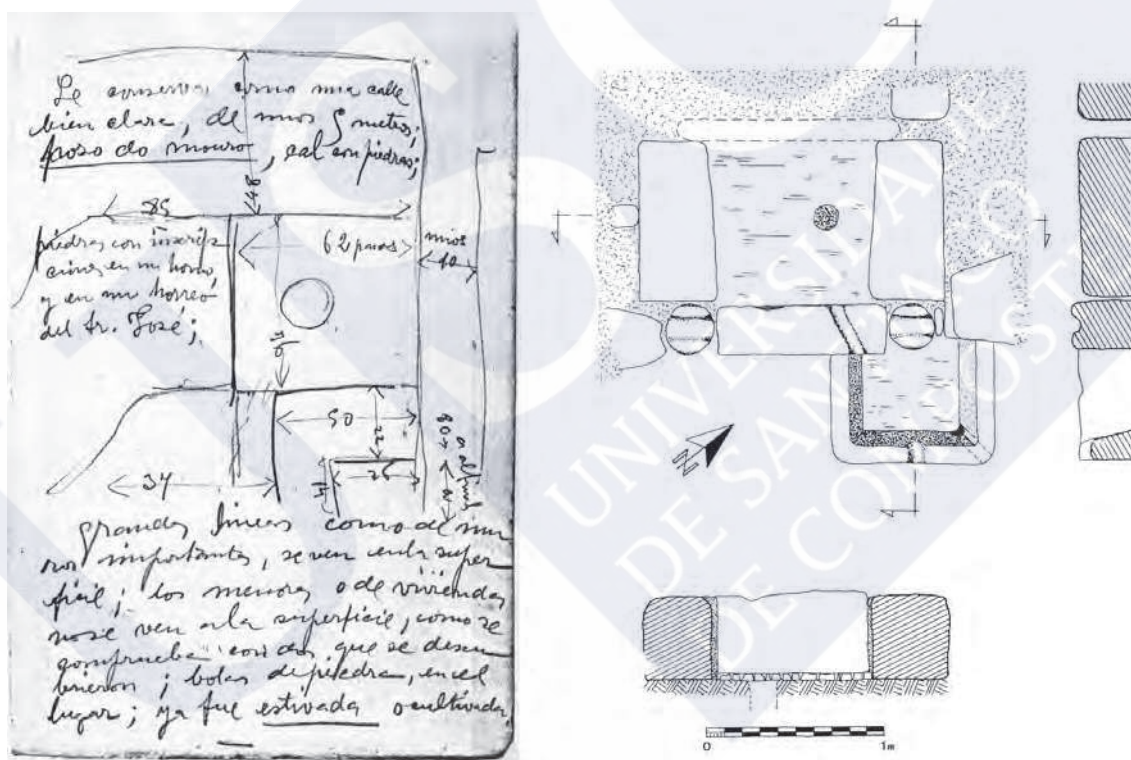 Se conserva como una calle
bien clara, de unos 5 metros;
pozo do mouro, cal con piedras;
48
85
piedras con inscrip
ciones en un horno,
y en un horreo
del Sr. José;
62 pasos
unos
10
40
50
22
26
14
34
80
grandes lineas como de mu
ros importantes, se ven en la super
ficie; los menores o de viviendas
no se ven a la superficie, como se
comprueba con dos que se descu
brieron; bolas de piedra, en el
lugar; ya fue estivada o cultivada,
N
0
1m
UNIVERSIDADE
DE SANTIAGO
DE COMPOSTELA